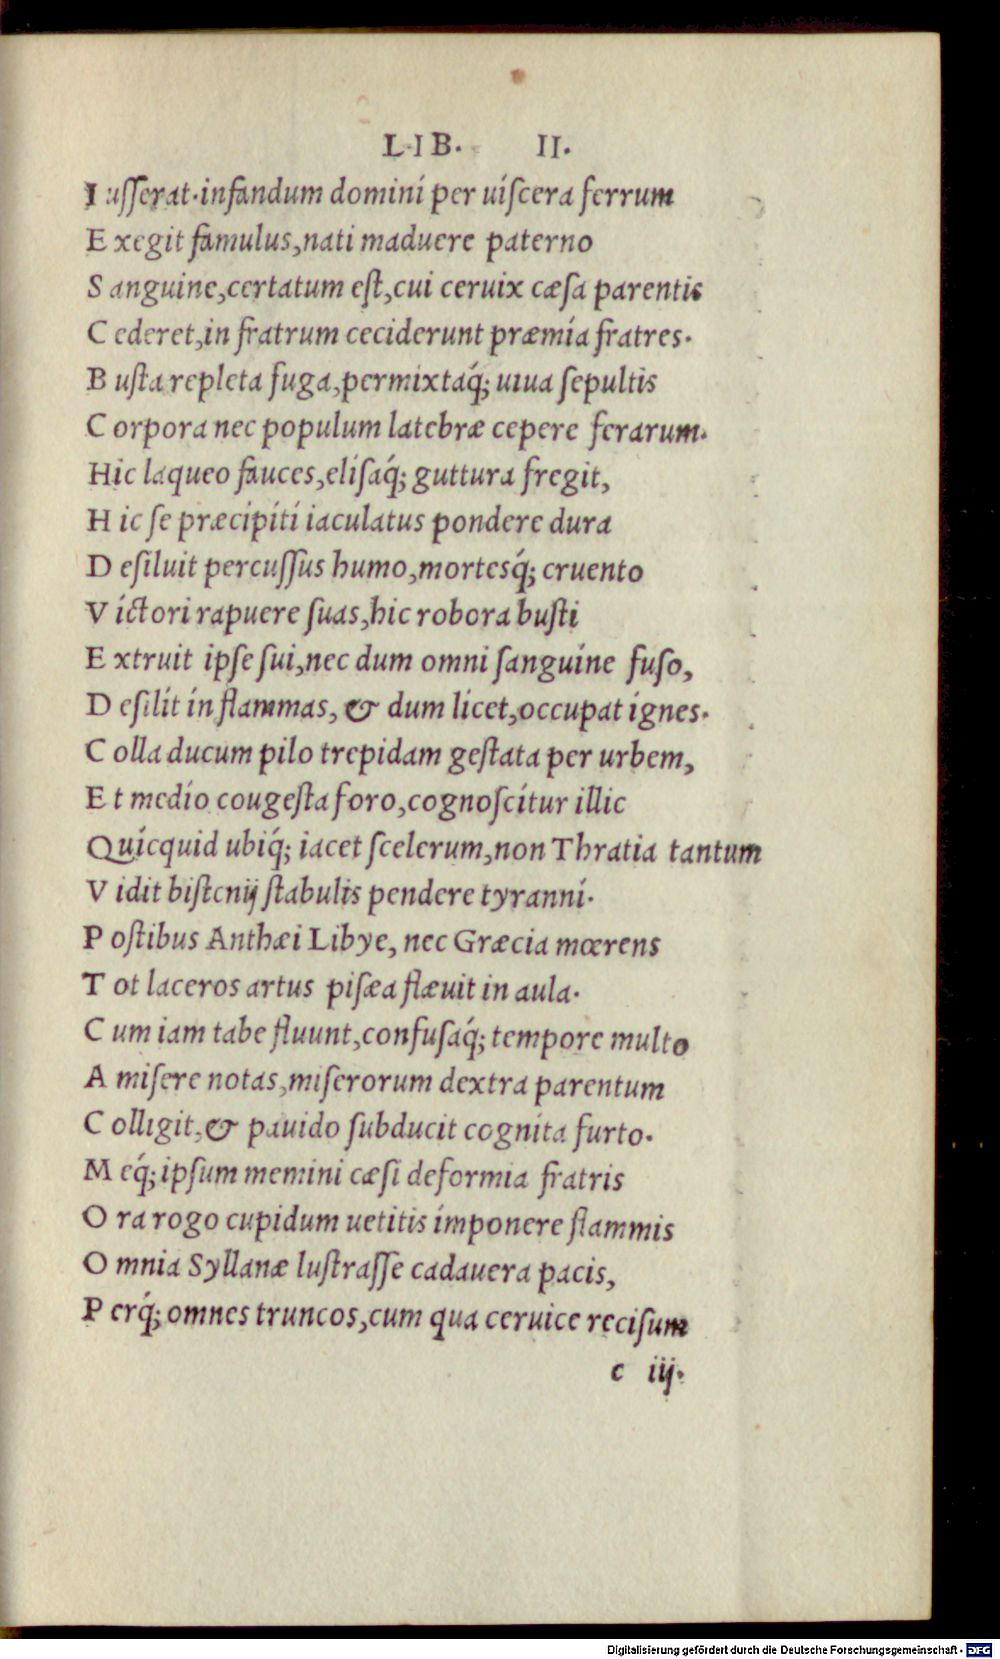 LIB. II.
I uſſerat.infandum domini per uiſcera ferrum
E xegit famulus,nati maduere paterno
S anguine,certatum eſt,cui ceruix cæſa parentis
C ederet,in fratrum ceciderunt præmia fratres.
B uſta repleta fuga,permixtaq́; uiua ſepultis
C orpora nec populum latebræ cepere ferarum.
Hic laqueo fauces,eliſaq́; guttura fregit,
H ic ſe præcipiti iaculatus pondere dura
D eſiluit percuſſus humo,mortesq́; cruento
V ictori rapuere ſuas,hic robora buſti
E xtruit ipſe ſui,nec dum omni ſanguine fuſo,
D eſilit in flammas, & dum licet,occupat ignes.
C olla ducum pilo trepidam geſtata per urbem,
E t medio cougeſta foro,cognoſcitur illic
Quicquid ubiq́; iacet ſcelerum,non Thratia tantum
V idit biſtcnij ſtabulis pendere tyranni.
P oſtibus Anthæi Libye, nec Græcia mœrens
T ot laceros artus piſæa flæuit in aula.
C um iam tabe fluunt,confuſaq́; tempore multo
A miſere notas,miſerorum dextra parentum
C olligit,& pauido ſubducit cognita furto.
M eq́; ipſum memini cæſi deformia fratris
O ra rogo cupidum uetitis imponere flammis
O mnia Syllanæ luſtraſſe cadauera pacis,
P erq́; omnes truncos,cum qua ceruice reciſum
c iij.
Digitalisierung gefördert durch die Deutsche Forschungsgemeinschaft - DFG